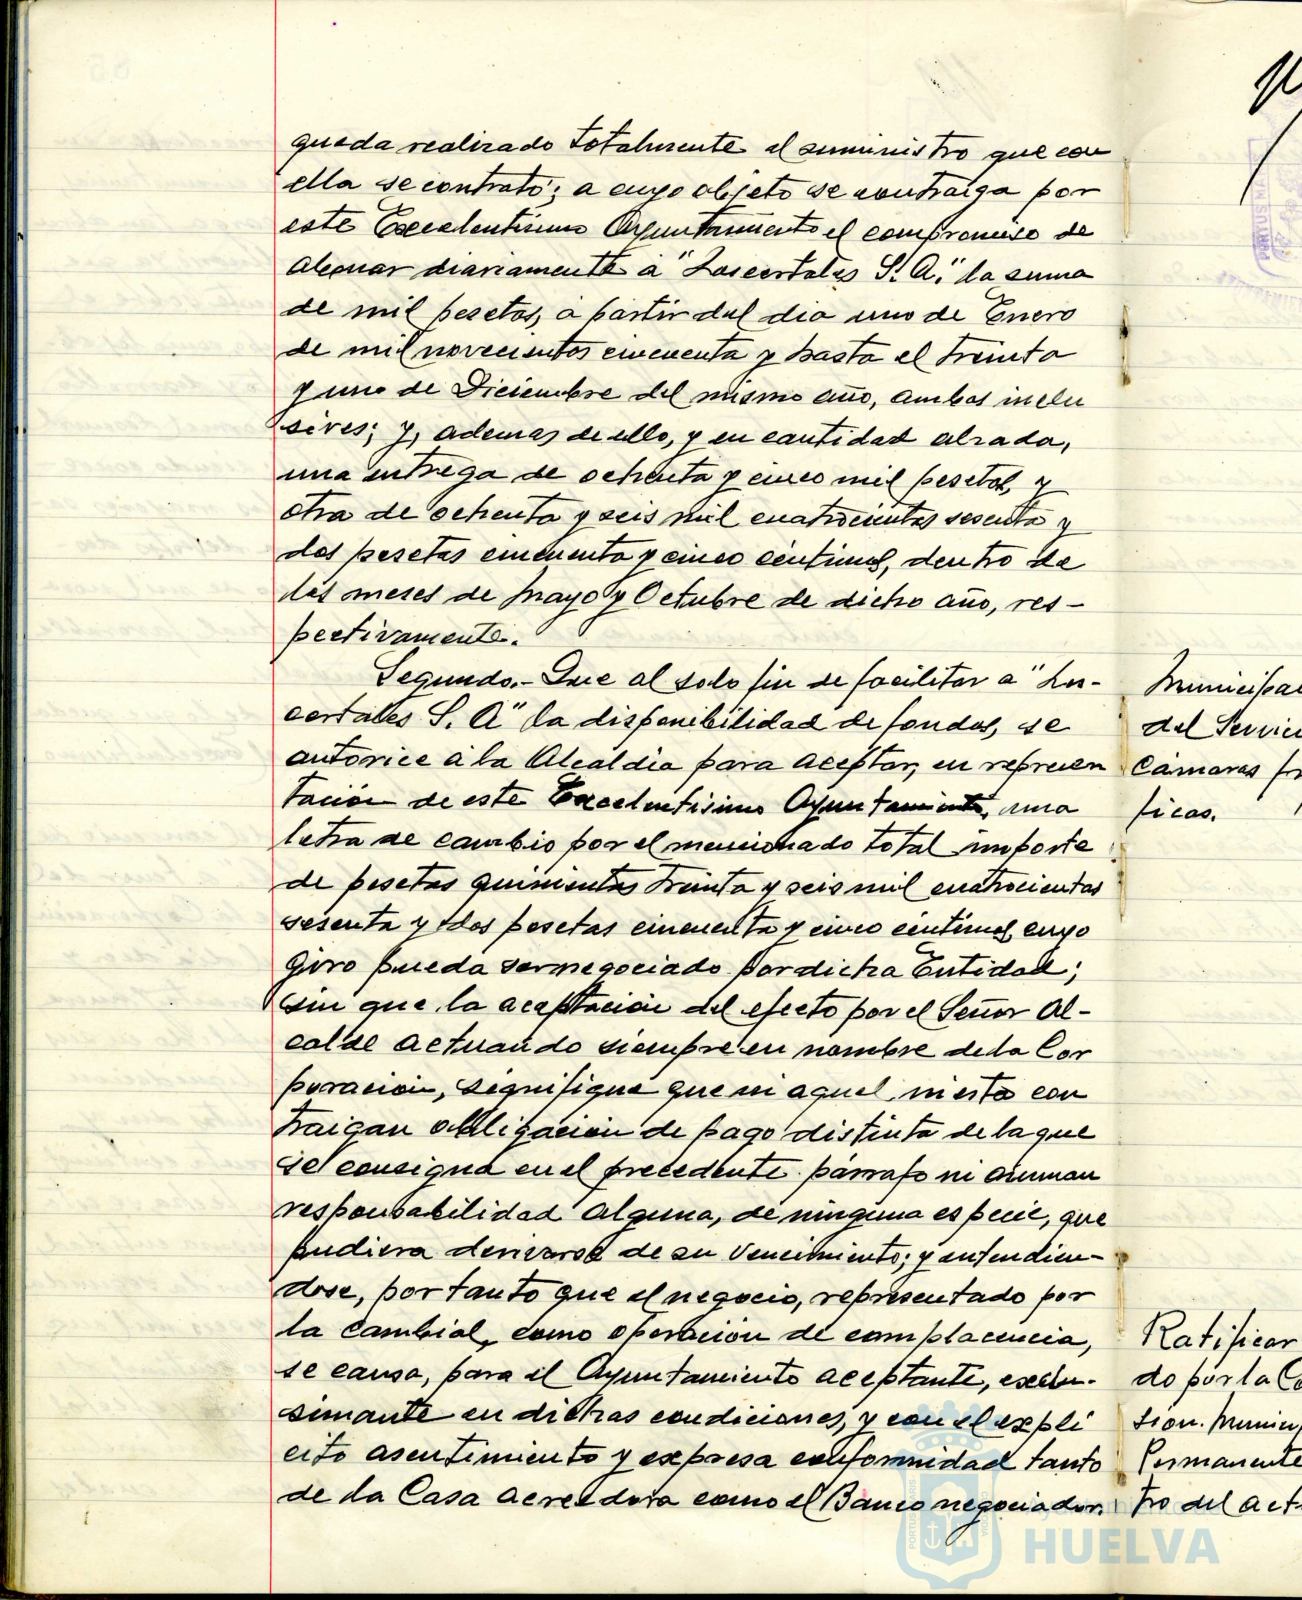 queda realizado totalmente el suministro que con
ella se contrató; a cuyo objeto se contraiga por
este Excelentísimo Ayuntamiento el compromiso de
abonar diariamente a "Luscertales S. A." la suma
de mil pesetas, a partir del dia uno de Enero
de mil novecientos cincuenta y hasta el treinta
y uno de Diciembre del mismo año, ambos inclu
sives; y, ademas de ello, y en cantidad alzada,
una entrega de ochenta y cinco mil pesetas, y
otra de ochenta y seis mil cuatrocientas sesenta y
dos pesetas cincuenta y cinco céntimos, dentro de
los meses de Mayo y Octubre de dicho año, res-
pectivamente.
Segundo.- Que al solo fin de facilitar a "Lus-
certales S. A" la disponibilidad de fondos, se
autorice a la Alcaldia para aceptar, en represen
tación de este Excelentisimo Ayuntamiento, una
letra de cambio por el mencionado total importe
de pesetas quinientas treinta y seis mil cuatrocientas
sesenta y dos pesetas cincuenta y cinco céntimos, cuyo
giro pueda ser negociado por dicha Entidad;
sin que la aceptación del efecto por el Señor Al-
calde actuando siempre en nombre de la Cor
poración, signifique que ni aquel ni esta con
traigan obligación de pago distinta de la que
se consigna en el precedente párrafo ni asuman
responsabilidad alguna, de ninguna especie, que
pudiera derivarse de su vencimiento; y entendien-
dose, por tanto que el negocio, representado por
la cambial, como operación de complacencia,
se causa, para el Ayuntamiento aceptante, exclu-
simante en dichas condiciones, y con el expli
cito asentimiento y expresa conformidad tanto
de la Casa acreedora como el Banco negociador.
Municipal
del Servici
Cámaras fr
ficas.
Ratificar
do por la Co
sion. Municip
Permanente
tro del act
PORTUS MA
Ayuntamiento de
HUELVA